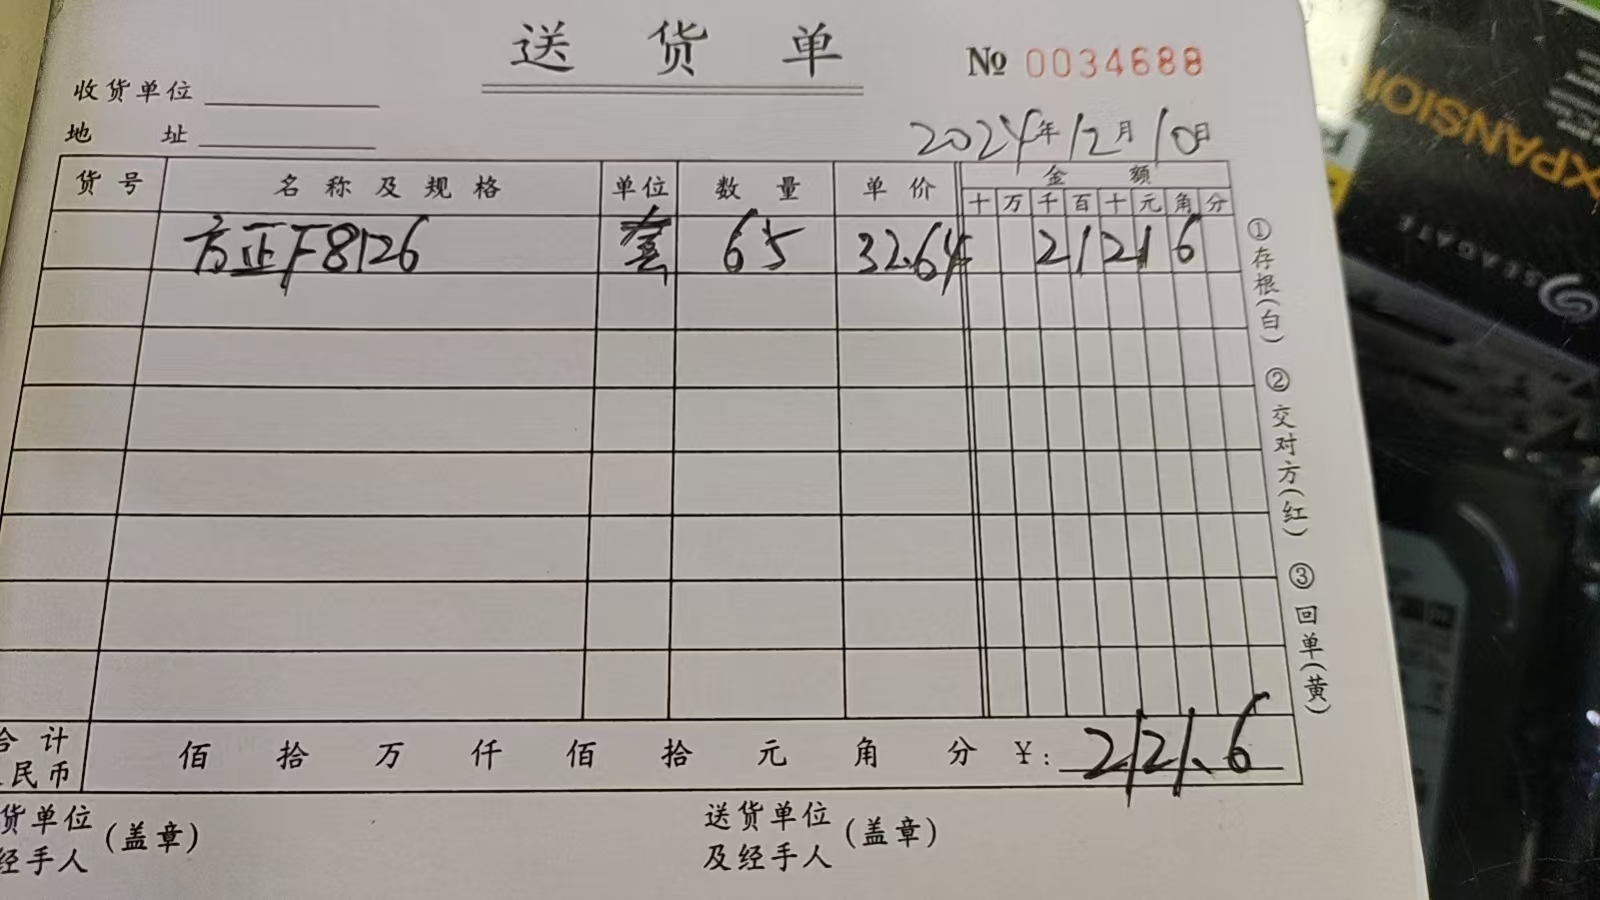 送货单
№ 0034688
收货单位
地址
2024年12月10日
货号 名称及规格 单位 数量 单价 金额
十 万 千 百 十 元 角 分
方正F8126 套 65 32.64 2 1 2 1 6
合计 佰 拾 万 仟 佰 拾 元 角 分 ¥: 2121.6
民币
货单位
经手人 (盖章)
送货单位
及经手人 (盖章)
①存根(白) ②交对方(红) ③回单(黄)
EXPANSION
SEAGATE